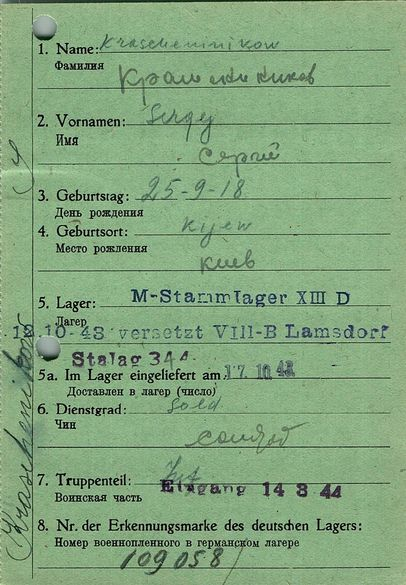 1. Name: Krascheninikow
Фамилия
Крашениников
2. Vornamen: Sergej
Имя
Сергей
3. Geburtstag: 25-9-18
День рождения
4. Geburtsort: Kijew
Место рождения
Киев
5. Lager: M-Stammlager XIII D
Лагер
12.10.43 versetzt VIII-B Lamsdorf
Stalag 344
5a. Im Lager eingeliefert am 17.10.43
Доставлен в лагер (число)
6. Dienstgrad: Sold
Чин
солдат
7. Truppenteil:
Воинская часть
Eingang 14 3 44
8. Nr. der Erkennungsmarke des deutschen Lagers:
Номер военнопленного в германском лагере
109058
Krascheninikow